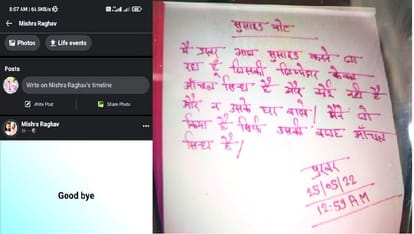 8:57 AM | 61.5KB/s
Mishra Raghav
Photos
Life events
Posts
Write on Mishra Raghav's timeline
Write Post
Share Photo
Mishra Raghav
Good bye
सुसाइड नोट
मैं प्रखर आज सुसाइड करने जा
रहा हूँ जिसकी जिम्मेदार केवल
आँचल सिन्ध है और कोई नही है
और न उसके घर वाले। मैंने जो
किया है सिर्फ उसकी वजह आँचल
सिन्ध है।
प्रखर
25/05/22
12:59 AM